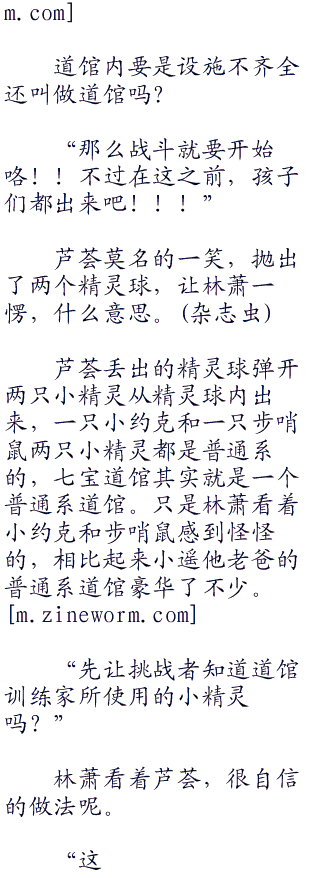 m.com]
道馆内要是设施不齐全
还叫做道馆吗？
“那么战斗就要开始
咯！！不过在这之前，孩子
们都出来吧！！！”
芦荟莫名的一笑，抛出
了两个精灵球，让林萧一
愣，什么意思。(杂志虫)
芦荟丢出的精灵球弹开
两只小精灵从精灵球内出
来，一只小约克和一只步哨
鼠两只小精灵都是普通系
的，七宝道馆其实就是一个
普通系道馆。只是林萧看着
小约克和步哨鼠感到怪怪
的，相比起来小遥他老爸的
普通系道馆豪华了不少。
[m.zineworm.com]
“先让挑战者知道道馆
训练家所使用的小精灵
吗？”
林萧看着芦荟，很自信
的做法呢。
“这